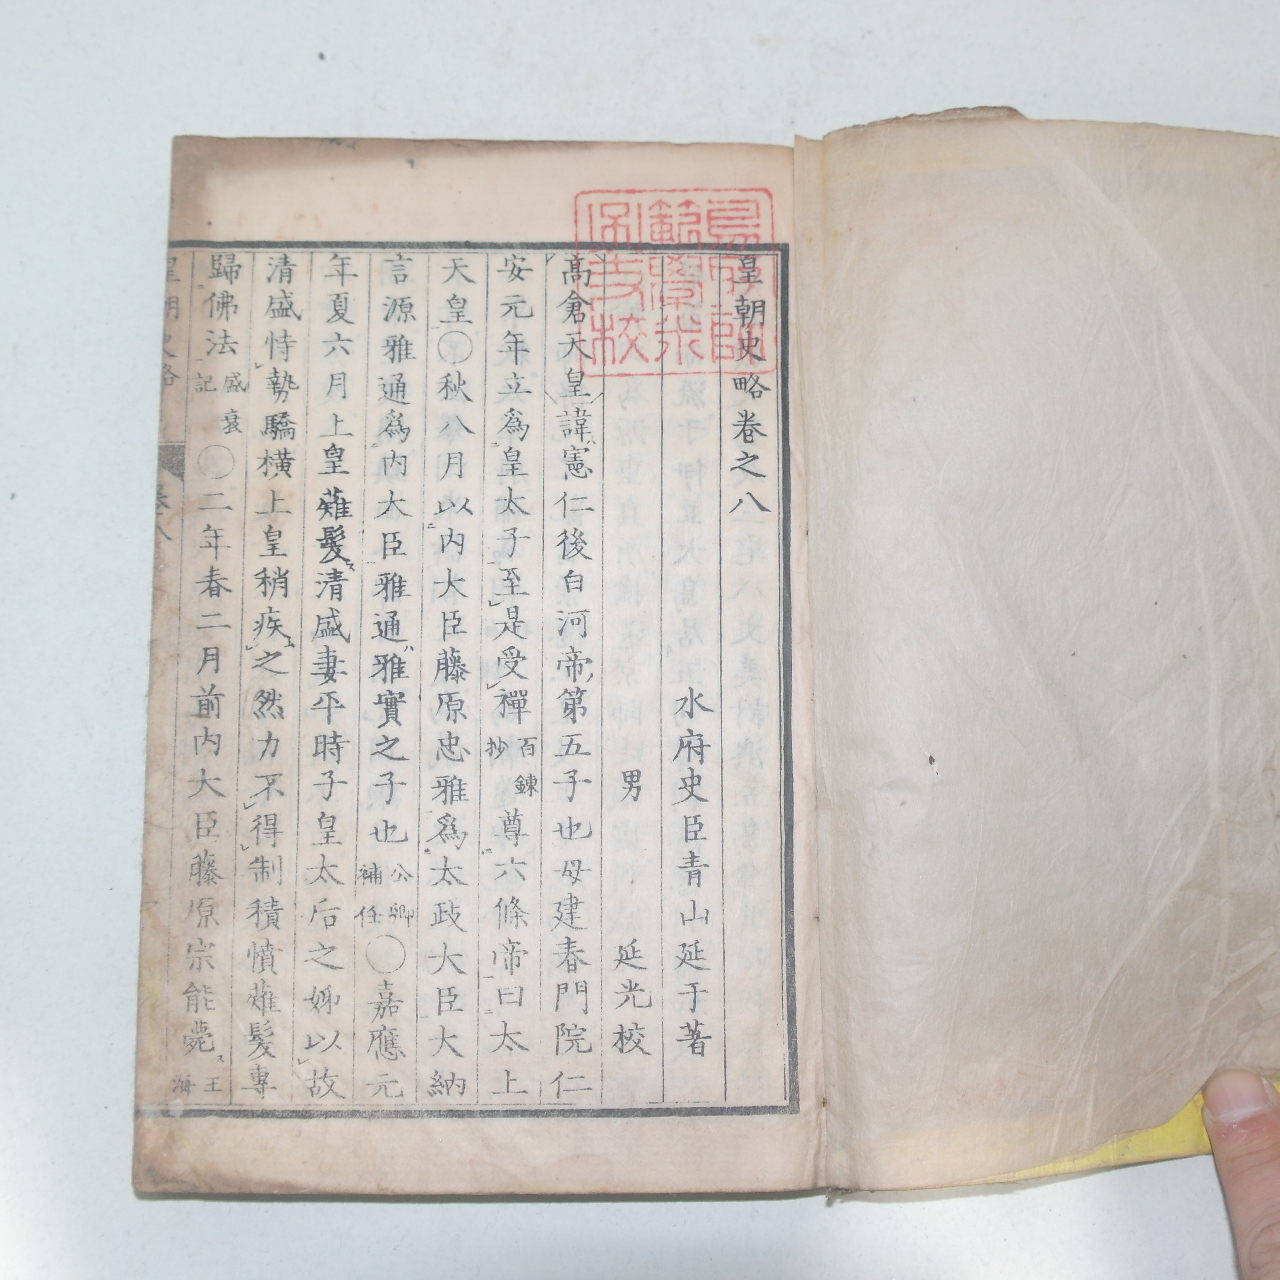 皇朝史略卷之八
水府史臣青山延于著
男 延光校
高倉天皇諱憲仁後白河帝第五子也母建春門院仁
安元年立爲皇太子至是受禪百鍊抄尊六條帝曰太上
天皇○秋八月以內大臣藤原忠雅爲太政大臣大納
言源雅通爲內大臣雅通雅實之子也公卿補任○嘉應元
年夏六月上皇薙髮清盛妻平時子皇太后之姊以故
清盛恃勢驕橫上皇稍疾之然力不得制積憤薙髮專
歸佛法盛衰記○二年春二月前內大臣藤原宗能薨玉海
皇朝史略 卷八
範學校